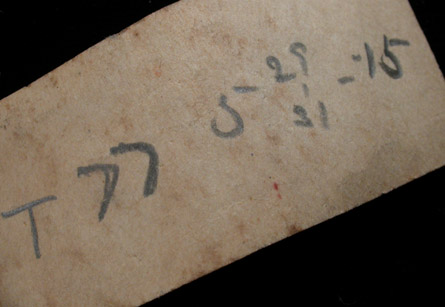 T 77 5 29 31 - 15